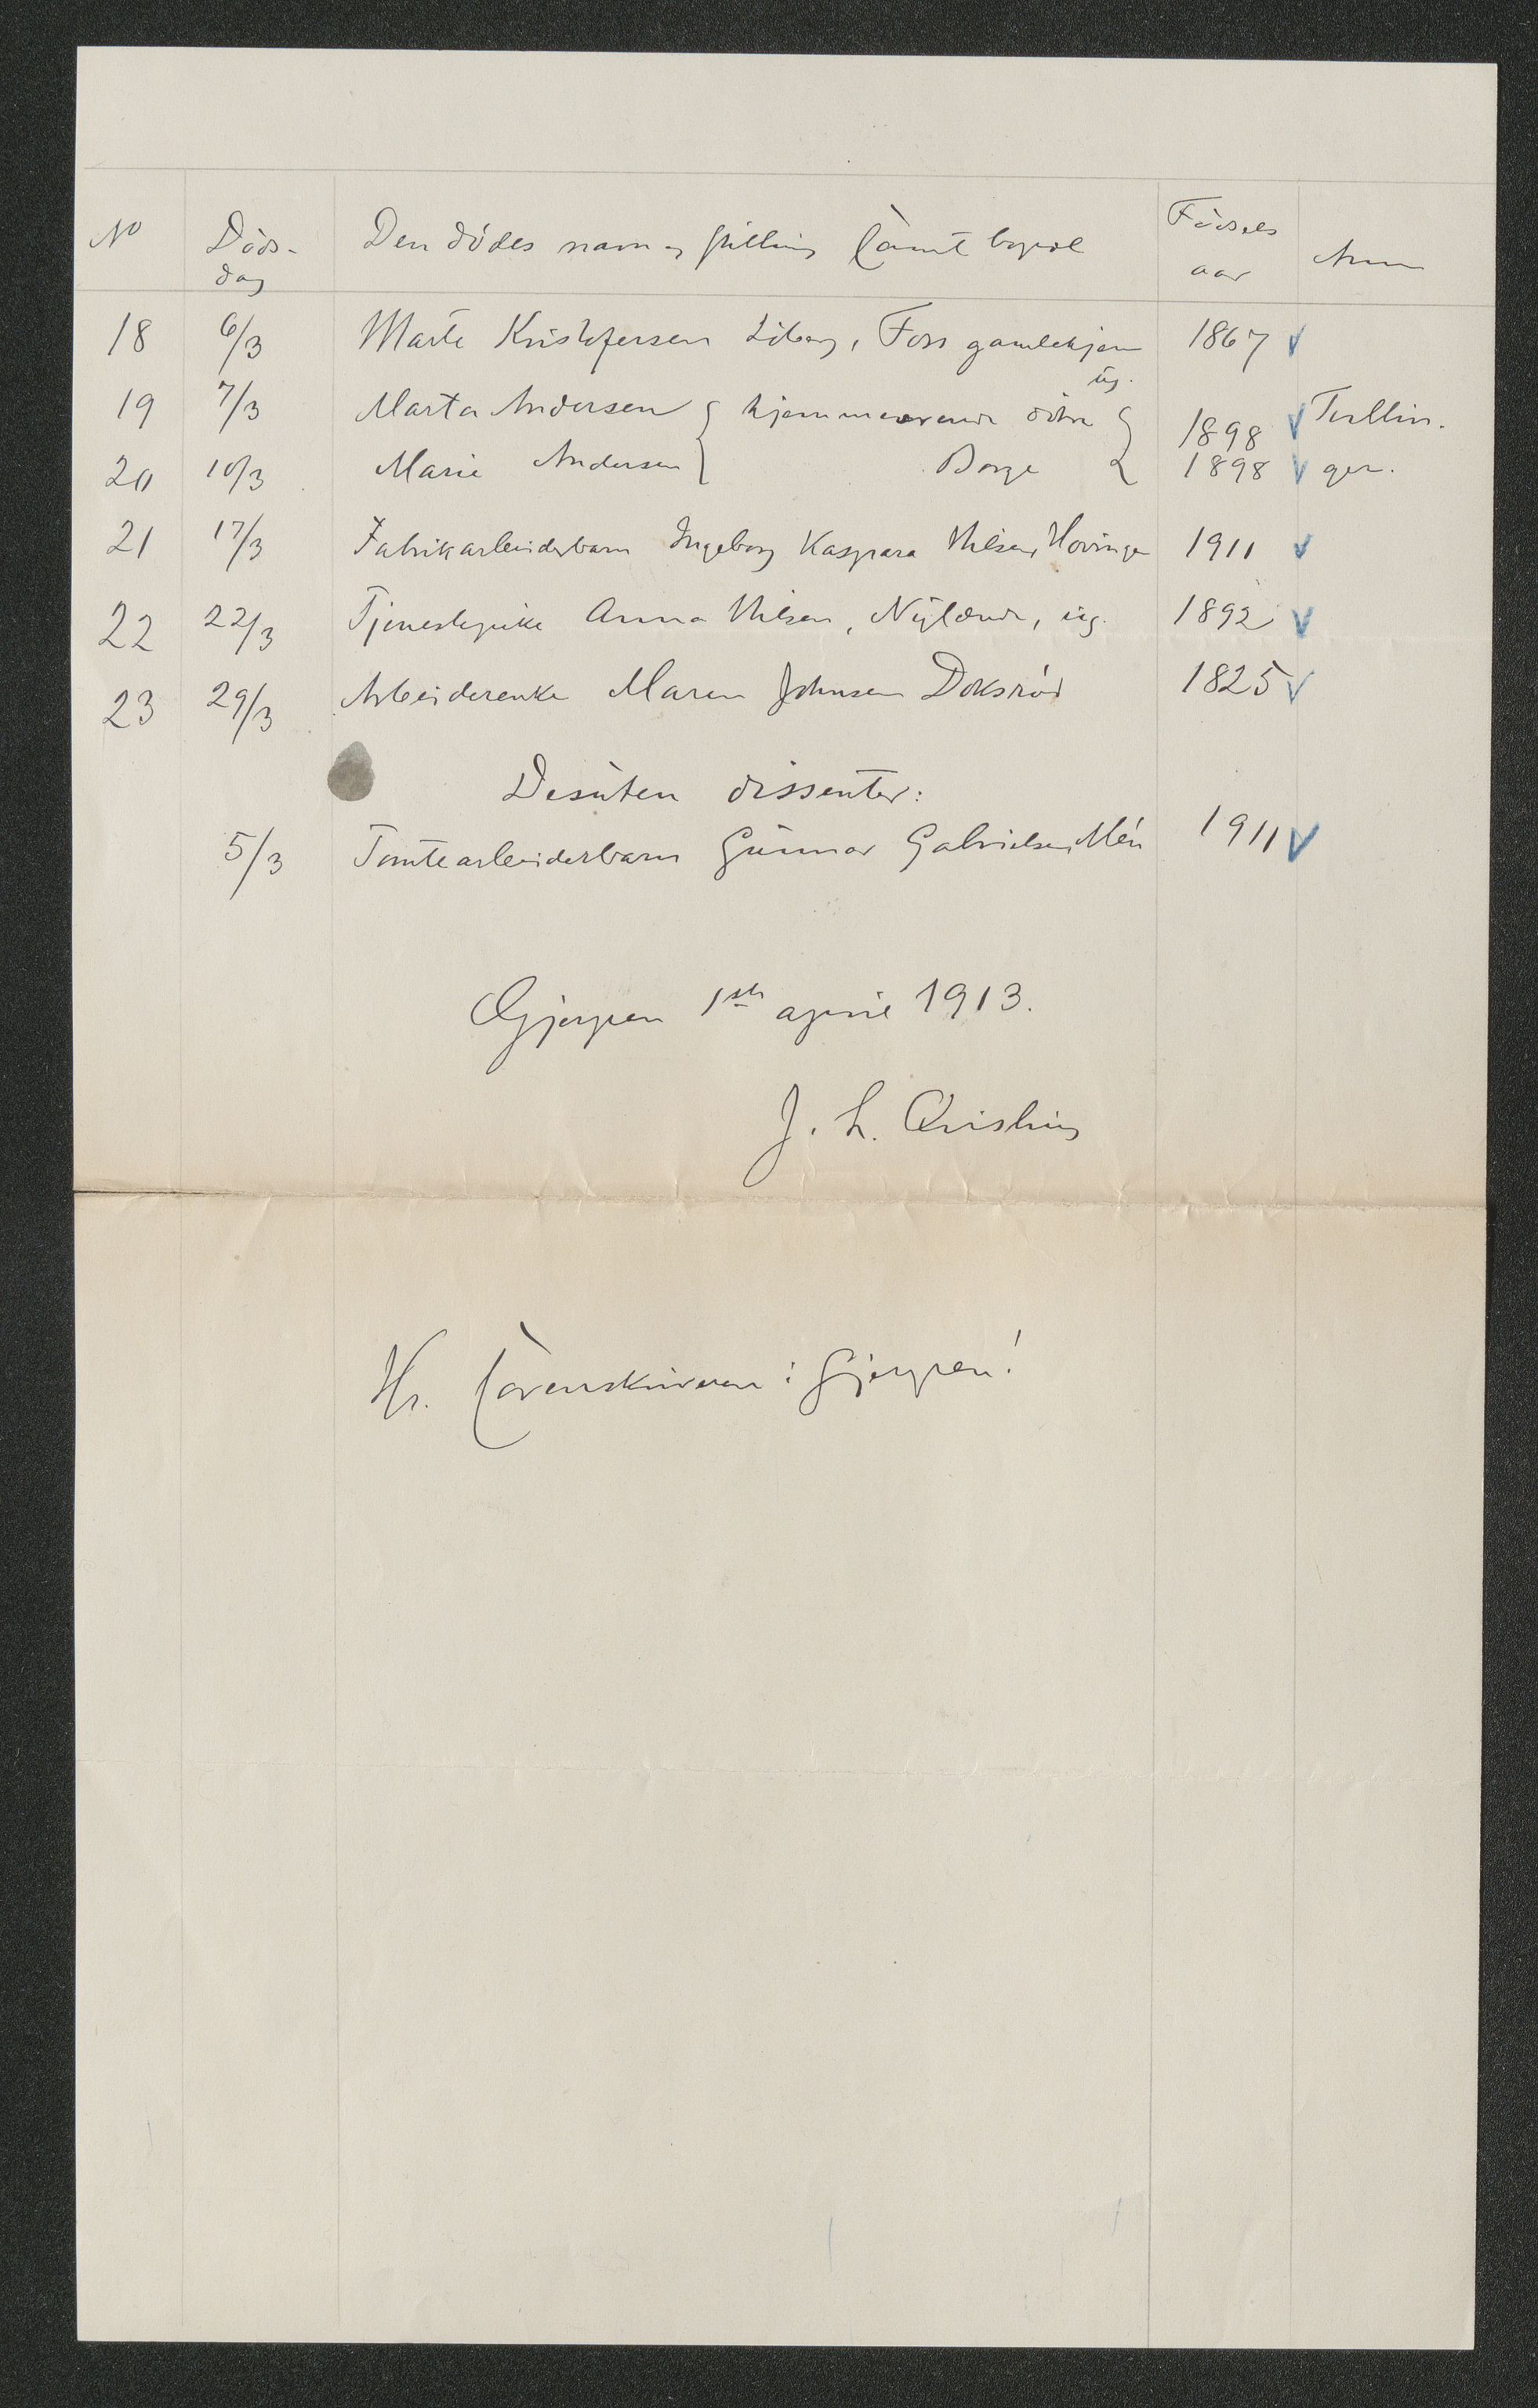 No Døds- Den dødes navn og stilling samt bopæl Fødsels Anm
dag aar
18 6/3 Marte Kristofersen Liberg, Foss gamlehjem 1867
ug.
19 7/3 Marta Andersen } hjemmeværende døtre } 1898 Tvillin.
20 10/3 Marie Andersen } Borge } 1898 ger.
21 17/3 Fabrikarbeiderbarn Ingeborg Kaspara Nilsen, Hovinga 1911
22 22/3 Tjenestepike Anna Nilsen, Nylænde, ug. 1892
23 29/3 Arbeiderenke Maren Johnsen Doksrød 1825
Desuten dissenter:
5/3 Tomtearbeiderbarn Gunnar Gabrielsen, Mén 1911
Gjerpen 1ste april 1913.
J. L. Qvisling
Hr. Sorenskriveren i Gjerpen!